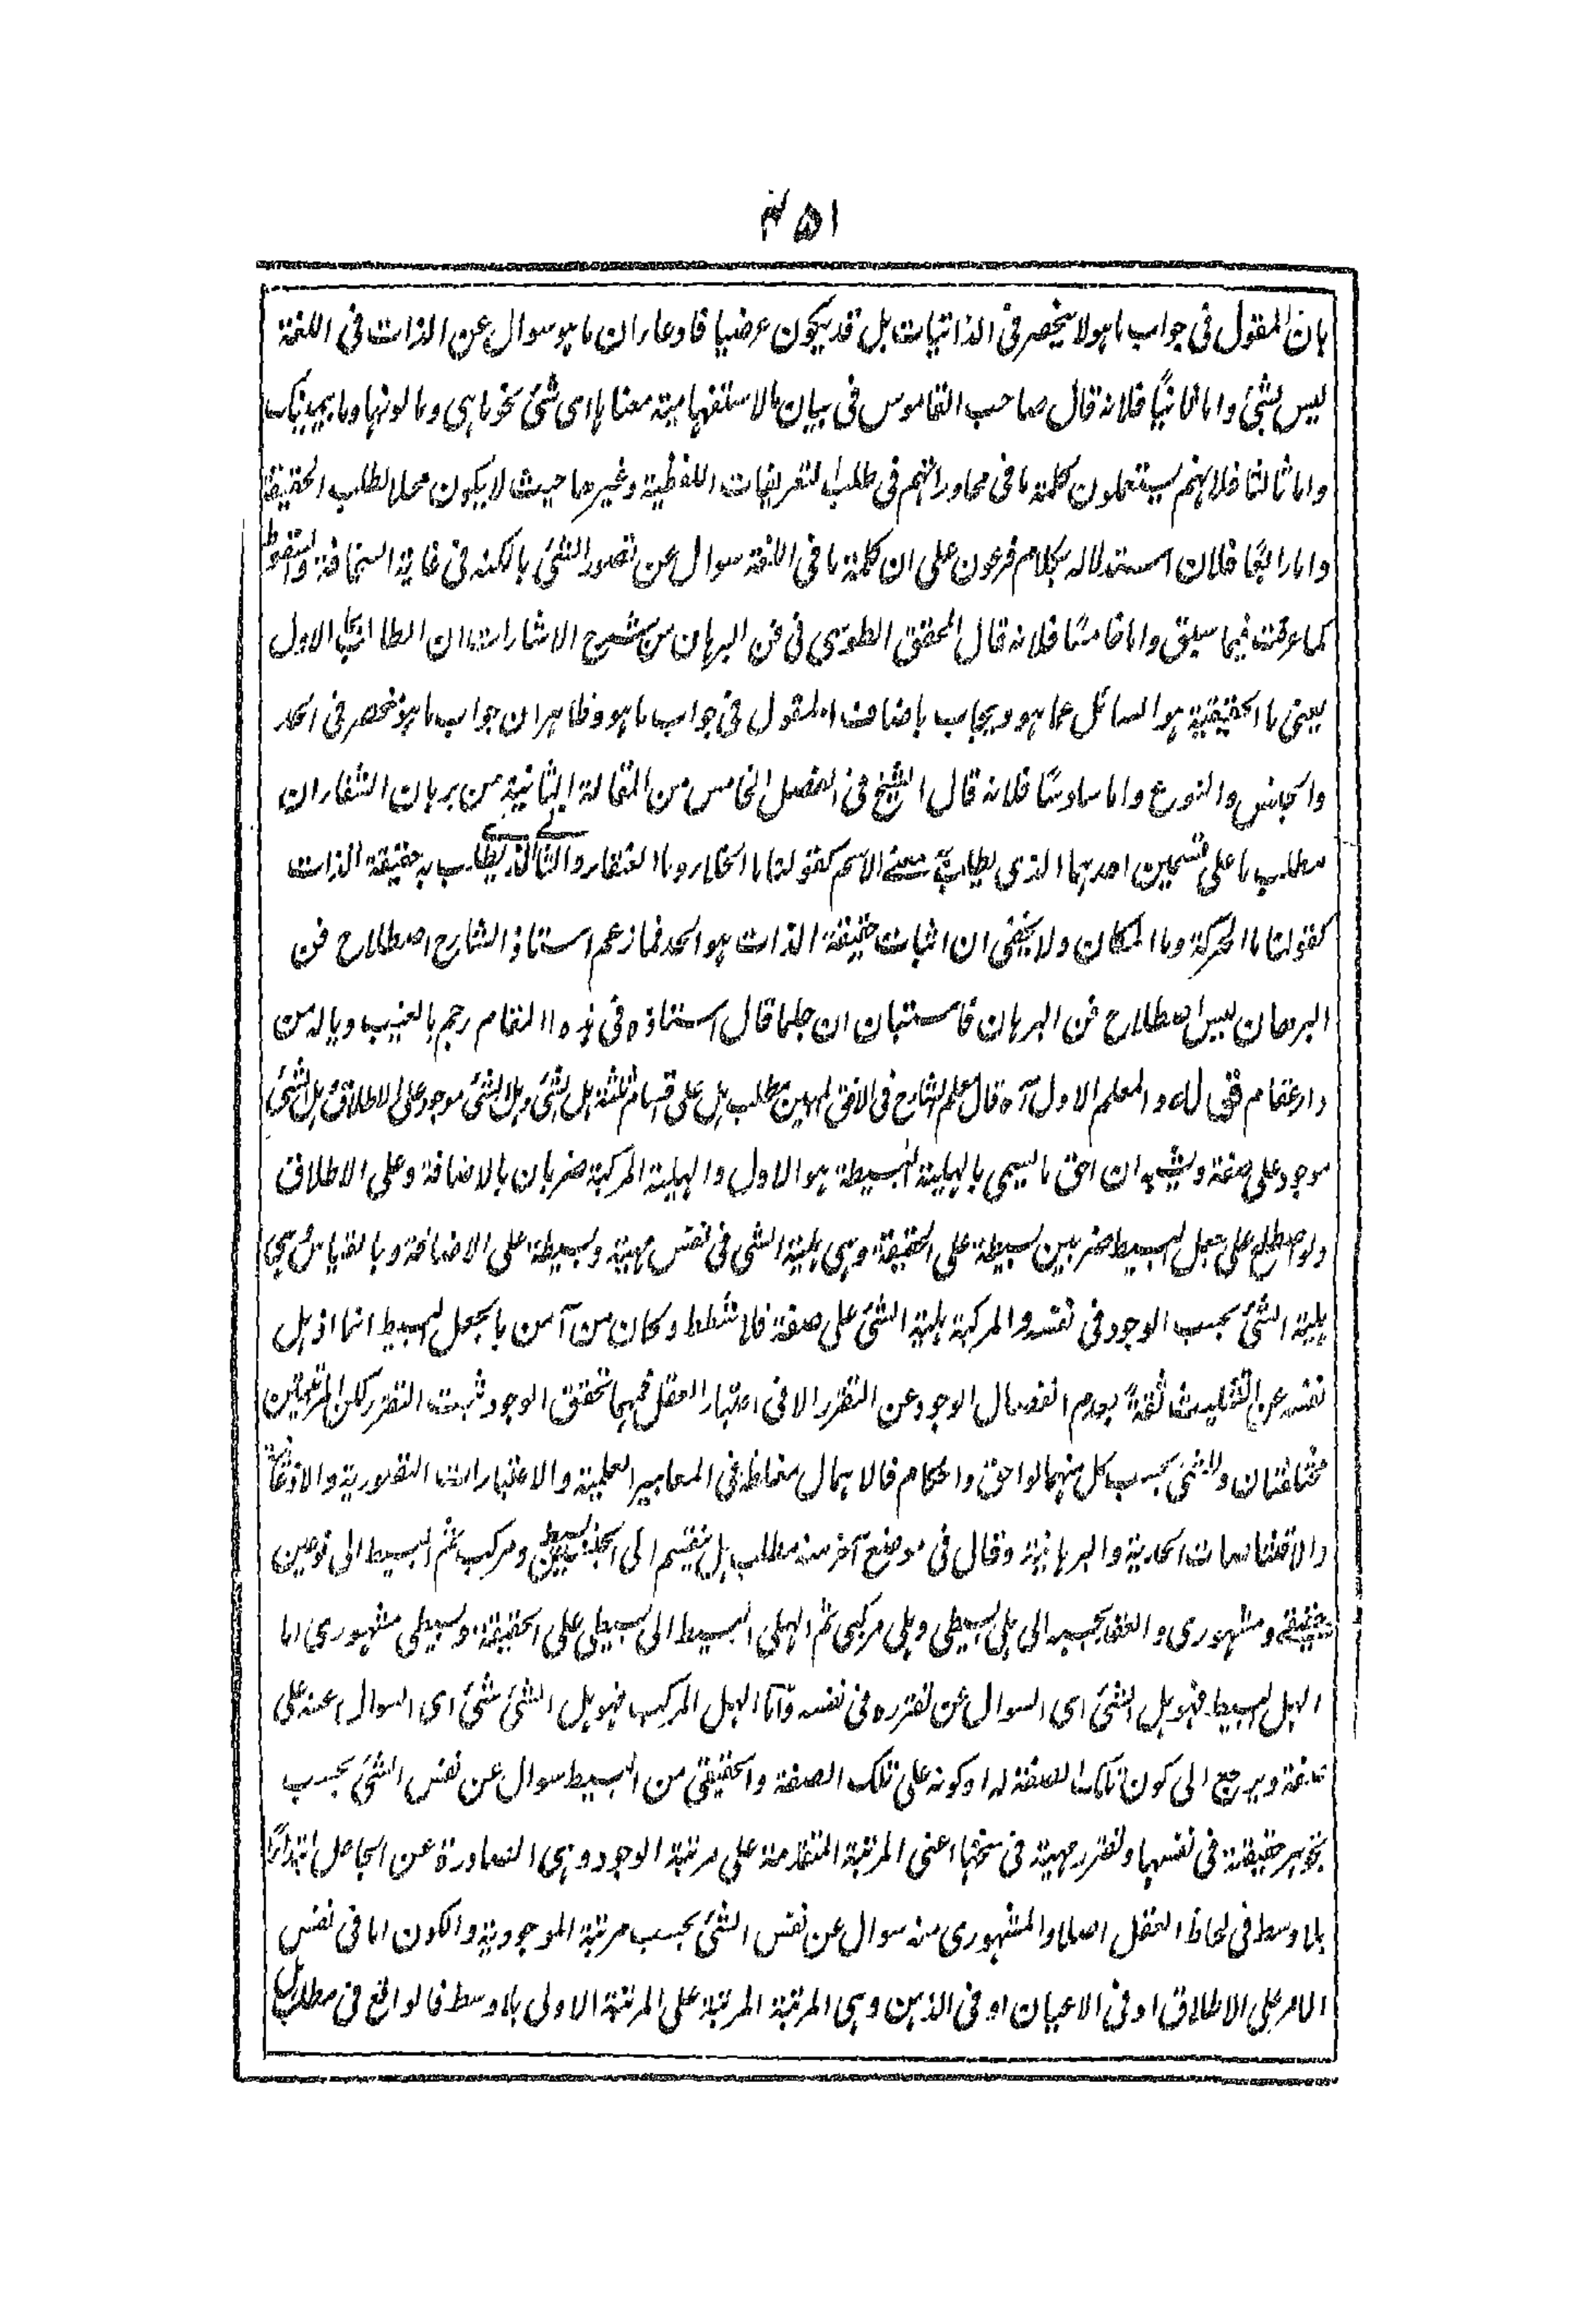 ۴۵۱
بان المقول فى جواب ما هو لا ينحصر فى الذاتيات بل قد يكون عرضيا فادعاء ان ما هو سوال عن الذات فى اللغة
ليس بشئ واما ثانيًا فلانه قال صاحب القاموس فى بيان ما الاستفهامية معناها اى شئ نحو ما هى وما لونها وما بيمينك
واما ثالثا فلانهم يستعملون كلمة ما فى محاوراتهم فى طلب التعريفات اللفظية وغيرها حيث لا يكون محلا لطلب الحقيقة
واما رابعًا فلان استدلاله بكلام فرعون على ان كلمة ما فى اللغة سوال عن تصور الشئ بالكنه فى غاية السخافة والسقوط
كما عرفت فيما سبق واما خامسًا فلانه قال المحقق الطوسى فى فن البرهان من شرح الاشارات ان الطالب بما الاول
يعنى ما الحقيقية هو السائل عما هو ويجاب باصناف المقول فى جواب ما هو وظاهر ان جواب ما هو منحصر فى الحد
والجنس والنوع واما سادسًا فلانه قال الشيخ فى الفصل الخامس من المقالة الثانية من برهان الشفاء ان
مطلب ما على قسمين احدهما الذى يطلب به معنى الاسم كقولنا ما الخلاء وما العنقاء والثانى الذى يطلب به حقيقة الذات
كقولنا ما الحركة وما المكان ولا يخفى ان اثبات حقيقة الذات هو الحد فما زعم استاذ الشارح اصطلاح فن
البرهان ليس اصطلاح فن البرهان فاستبان ان جلما قال استاذه فى هذه المقام رجم بالغيب وياله من
داء عقام قوله والمعلم الاول آه قال معلم الشارح فى الافق المبين مطلب هل على اقسام ثلثة هل الشئ وهل الشئ موجود على الاطلاق وهل الشئ
موجود على صفة ويشبه ان احق ما يسمى بالهلية البسيطة هو الاول والهلية المركبة ضربان بالاضافة وعلى الاطلاق
ولو اصطلح على جعل البسيط ضربين بسيطة على الحقيقة وهى هلية الشئ فى نفس مهيته وبسيطة على الاضافة وبالقياس هى
هلية الشئ بحسب الوجود فى نفسه والمركبة هلية الشئ على صفة فلا شطط وكان من آمن بالجعل البسيط انما اذهل
نفسه عن التثليث ثقةً بعدم انفصال الوجود عن التقرر الا فى اعتبار العقل فمهما تحقق الوجود ثبت التقرر لكن المرتبتين
مختلفتان وللشئ بحسب كل منهما لواحق واحكام فالاهمال مغلطة فى المعايير العلمية والاعتبارات التصورية والاذعانية
والاقتناصات الحدية والبرهانية وقال فى موضع آخر منه مطلب هل ينقسم الى البسيط ومركب ثم البسيط الى نوعين
حقيقے ومشهورى والعقد بحسبه الى هل بسيطى وهلى مركبى ثم الهلى البسيط الى بسيطى على الحقيقة وبسيطى مشهورى اما
الهل البسيط فهو هل الشئ اى السوال عن تقرره فى نفسه وآما الهل المركب فهو هل الشئ شئ اى السوال عنه على
صفة ويرجع الى كون تلك الصفة له او كونه على تلك الصفة والحقيقى من البسيط سوال عن نفس الشئ بحسب
تجوهر حقيقته فى نفسها وتقرر مهيته فى سنخها اعنى المرتبة المتقدمة على مرتبة الوجود وهى الصادرة عن الجاعل ابتداءً
بلا وسط فى لحاظ العقل اصلا والمشهورى منه سوال عن نفس الشئ بحسب مرتبة الموجودية والكون اما فى نفس
الامر على الاطلاق او فى الاعيان او فى الذهن وهى المرتبة المرتبة على المرتبة الاولى بلا وسط فالواقع فى مطلب هل